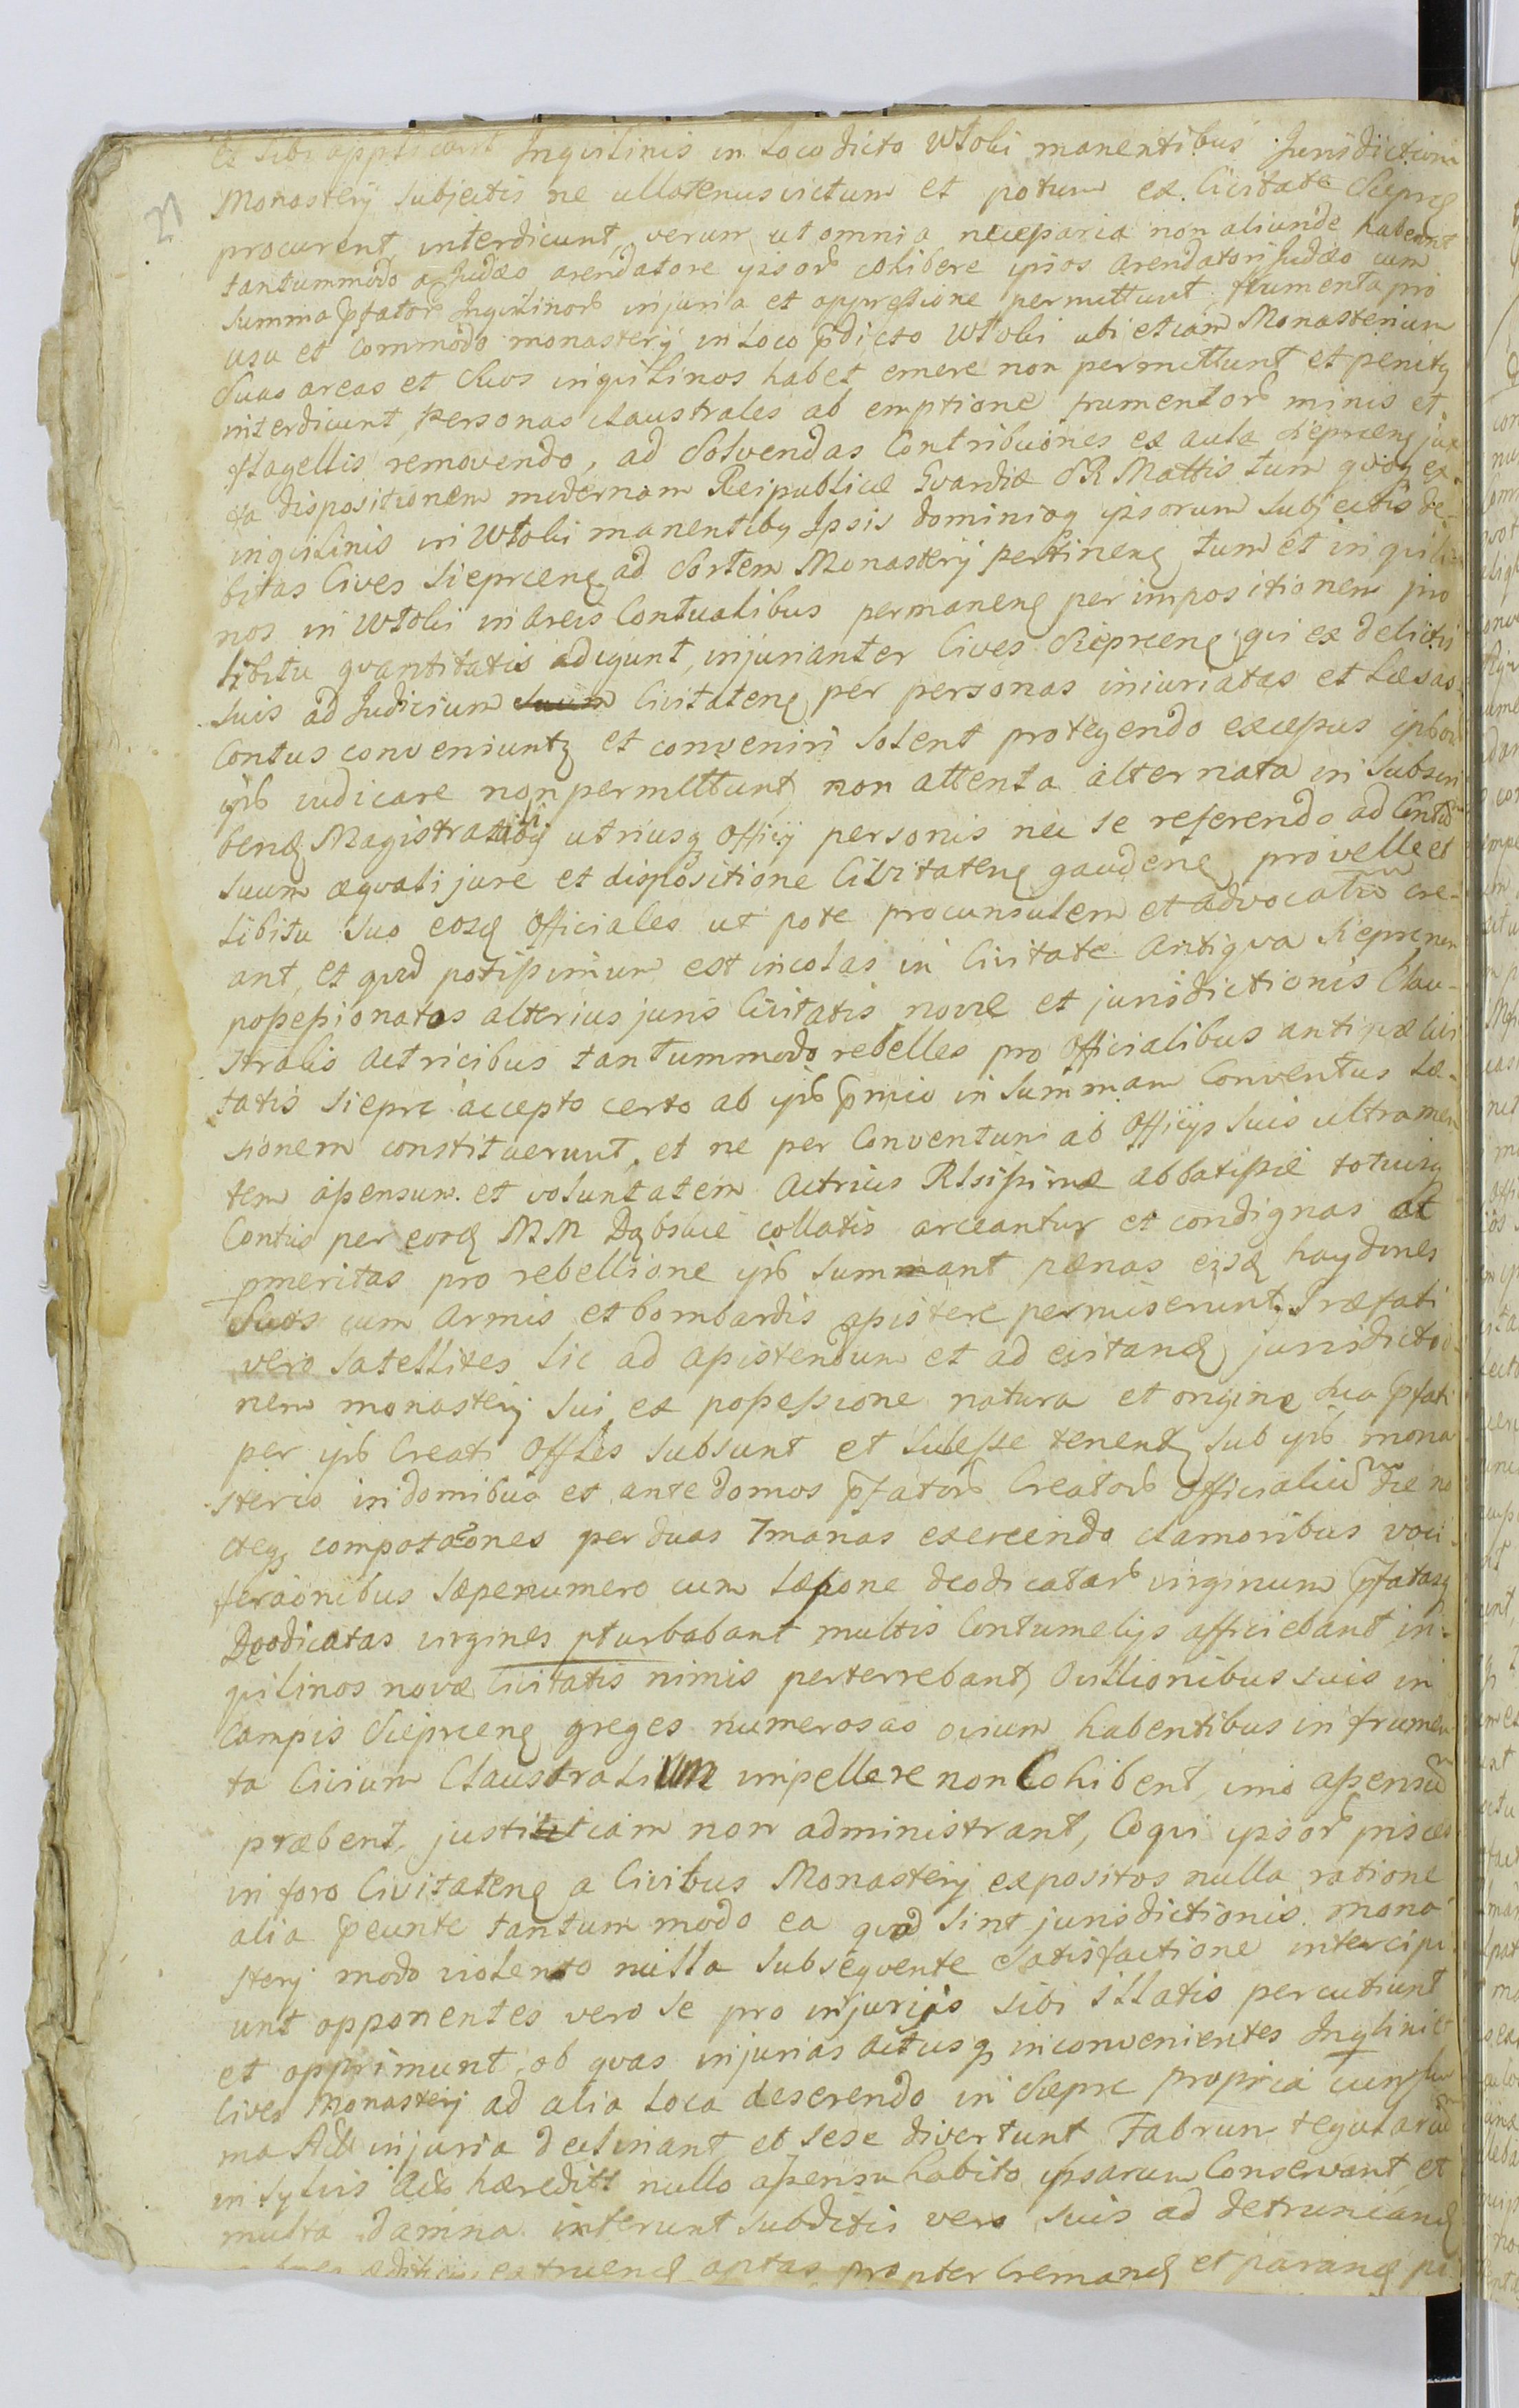 et sibi applicant Inquilinis in Loco dicto Wtoki manentibus Jurisdictioni
Monasterij subjectis ne ullatenus victum et potum ex Civitate Sieprcę
procurent, interdicunt, verum ut omnia necessaria non aliunde habeant
tantummodo a Judæo arendatore ipsorȝ cohibere ipsos arendatori Judæo cum
summa p̄fatorȝ Inquilinorȝ injuria et oppressione permittunt, frumenta pro
usu et commodo monasterij in Loco p̄dicto Wtoki ubi etiam Monasterium
Suas areas et Suos inquilinos habet emere non permittunt et penitꝫ
interdicunt, Personas claustrales ab emptione frumentorȝ minis et
flagellis removendo, ad Solvendas Contribuōnes ex aula Sieprceną jux
ta dispositionem modernam Reipublicæ Gvardiæ SR Mattis tum quoqꝫ ex
inquilinis in Wtoki manentibꝫ Ipsis dominioqꝫ ipsorum subjectis de-
bitas Cives Sieprceną ad Sortem Monasterij pertineną tum et inquili
nos in Wtoki in areis Contualibus permaneną per impositionem pro
libitu quantitatis adigunt, injurianter Cives Sieprceną qui ex delictis
suis ad Judicium Civitateną per personas iniuriatas et Læsas
Contus conveniuntꝫ et conveniri solent protegendo excessus ipsorȝ
ipsȝ iudicare non permittunt, non attenta alternata in subscri
beną Magistratibꝫ utriusqꝫ Officij personis nec se referendo ad Contū
suum æquali jure et dispositione Civitateną gaudeną, pro velle et
libitu suo eosą Officiales ut pote proconsulem et advocatū cre-
ant, et quod potissimum est incolas in Civitate antiqua Sieprcen
possessionatos alterius juris Civitatis novæ et jurisdictionis Clau-
stralis actricibus tantummodo rebelles pro Officialibus antiquæ Civi
tatis Sieprc accepto certo ab ipsȝ p̄mio in summam Conventus Læ-
sionem constituerunt, et ne per Conventum ab Officijs suis ultra men
tem assensum et voluntatem Actricis Rlsissimæ abbatissæ totiusqꝫ
Contus per eosą MM Dąbskie collatis arceantur et condignas ac
pmeritas pro rebellione ipsȝ summant pænas eisą haydones
Suos cum armis et bombardis assistere permiserunt, Præfati
vero satellites sic ad assistendum et ad evitaną jurisdictio-
nem monasterij sui, ex possessione natura et origine sua p̄fati
per ipsȝ Creati Offles subsunt et subesse teneną sub ipsȝ mona
sterio in domibus et ante domos p̄fatorȝ Creatorȝ Officialiū die no
cteqꝫ compotaōnes per duas 7manas exercendo clamoribus voci
feraōnibus sæpenumero cum læsione deodicatarȝ virginum p̄fatasqꝫ
Deodicatas virgines pturbabant multis Contumelijs afficiebant in-
quilinos novæ Civitatis nimis perterrebant, Ovilionibus suis in
campis Sieprceną greges numerosas ovium habentibus in frumen
ta Civium Claustralium impellere non Cohibent, imo assensū
præbent, justitiam non administrant, Coqui ipsorȝ pisces
in foro Civitateną a Civibus Monasterij expositos nulla ratione
alia p̄eunte tantum modo ea quod sint jurisdictionis mona
sterij modo violento nulla subsequente satisfactione intercipi
unt opponentes vero se pro injurijs sibi illatis percutiunt
et opprimunt, ob quas injurias actusqꝫ inconvenientes Inqlini et
Cives Monasterij ad alia Loca deserendo in Sieprc propria cum sum
ma Actȝ injuria declinant et sese divertunt, Fabrum tegularū
in sylvis Actȝ hæreditt nullo assensu habito ipsarum Conservant et
multa damna inferunt subditis vero suis ad detruncaną
ædificijs extrueną aptas propter Cremaną et paraną pi